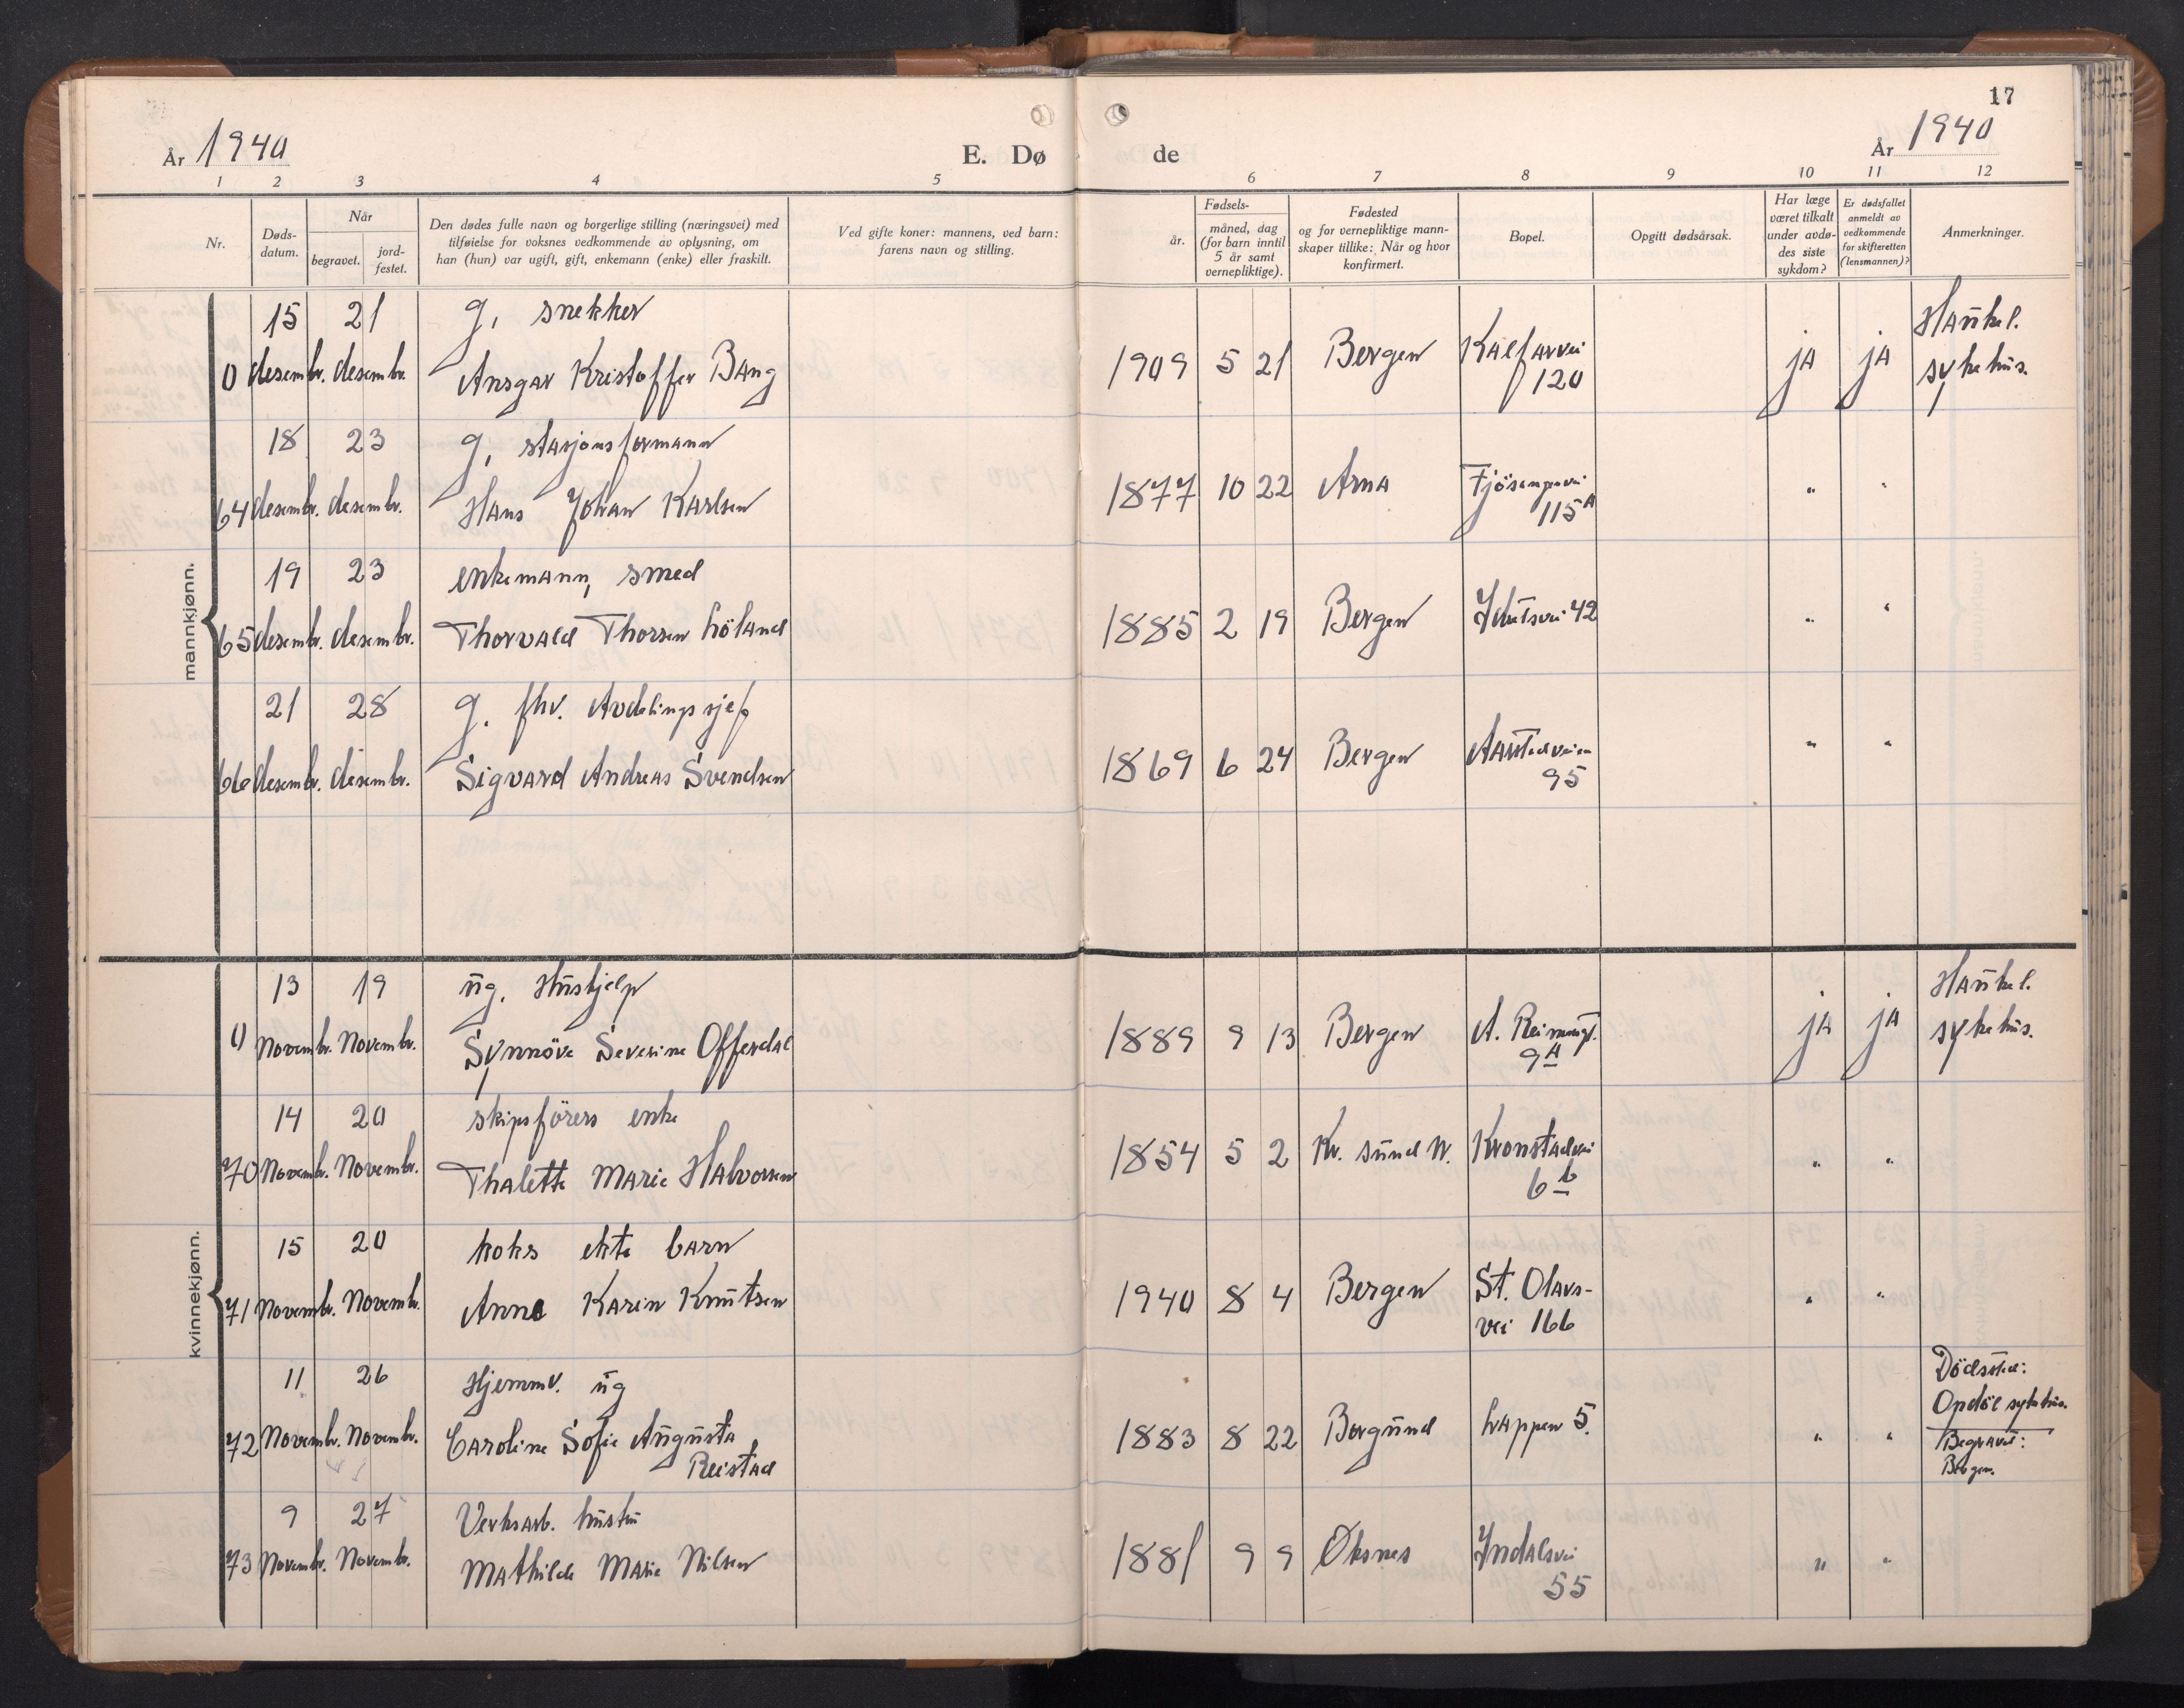 17
År 1940
E. Dø
de
År 1940
1 2 3 4 5
6 7 8 9 10 11 12
Nr.
Døds-
datum.
Når
begravet.
jord-
festet.
Den dødes fulle navn og borgerlige stilling (næringsvei) med
tilføielse for voksnes vedkommende av oplysning, om
han (hun) var ugift, gift, enkemann (enke) eller fraskilt.
Ved gifte koner: mannens, ved barn:
farens navn og stilling.
Fødsels-
år.
måned, dag
(for barn inntil
5 år samt
vernepliktige).
Fødested
og for vernepliktige mann-
skaper tillike: Når og hvor
konfirmert.
Bopel.
Opgitt dødsårsak.
Har læge
været tilkalt
under avdø-
des siste
sykdom?
Er dødsfallet
anmeldt av
vedkommende
for skifteretten
(lensmannen)?
Anmerkninger.
mannkjønn.
15 21 g. snekker
0 desembr. desembr. Ansgar Kristoffer Bang 1909 5 21 Bergen Kalfarvei
120
ja ja Haukel.
sykehus.
18 23 g. stasjonsformann
64 desembr. desembr. Hans Johan Karlsen 1877 10 22 Arna Fjösangervei
115A
" "
19 23 enkemann, smed
65 desembr. desembr. Thorvald Thorsen Höland 1885 2 19 Bergen 42
" "
21 28 g. fhv. Avdelingssjef
66 desembr. desembr. Sigvard Andreas Svendsen 1869 6 24 Bergen Aarstadveien
95
" "
kvinnekjønn.
13 19 ug. Hushjelp
0 Novembr. Novembr. Synnöve Severine Offerdal 1889 9 13 Bergen A. Reimersgt.
9A
ja ja Haukel.
sykehus.
14 20 skipsförers enke
70 Novembr. Novembr. Thalette Marie Halvorsen 1854 5 2 Kr. sund N. Kronstadvei
6b
" "
15 20 koks ekte barn
71 Novembr. Novembr. Anne Karin Knutsen 1940 8 4 Bergen St. Olavs-
vei 166
" "
11 26 Hjemmv. ug
72 Novembr. Novembr. Caroline Sofie Augusta
Reistad
1883 8 22 Borgund Lappen 5.
" "
Dödssted:
Opdöl sykehus.
Begravet:
Bergen.
9 27 Verksarb. hustru
73 Novembr. Novembr. Mathilde Marie Nilsen 1881 9 9 Øksnes Yndalsvei
55
" "